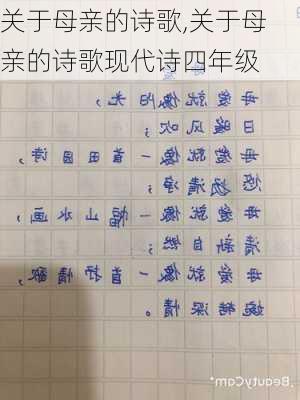 关于母亲的诗歌,关于母
亲的诗歌现代诗四年级
母爱就像阳光，
日暖风吹；
母爱就像一首田园诗，
悠远清净；
母爱就像一幅山水画，
清新自然；
母爱就像一首抒情歌，
婉转深情。
BeautyCam